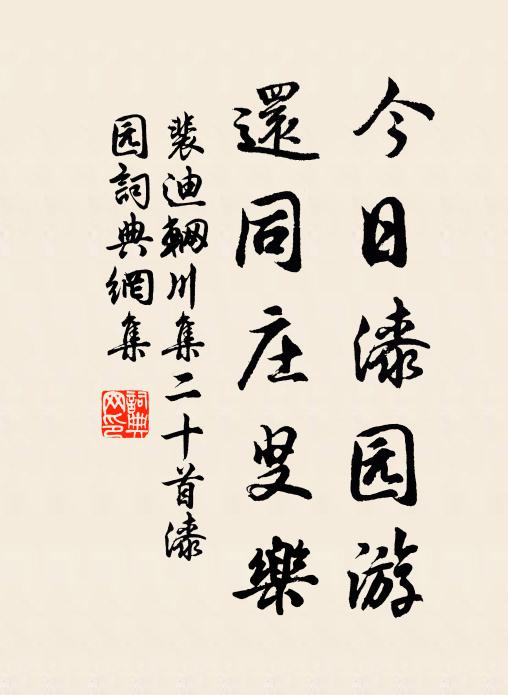 今日漆园游
還同庄叟樂
裴迪輞川集二十首漆
园詞典網集
詞典
网印